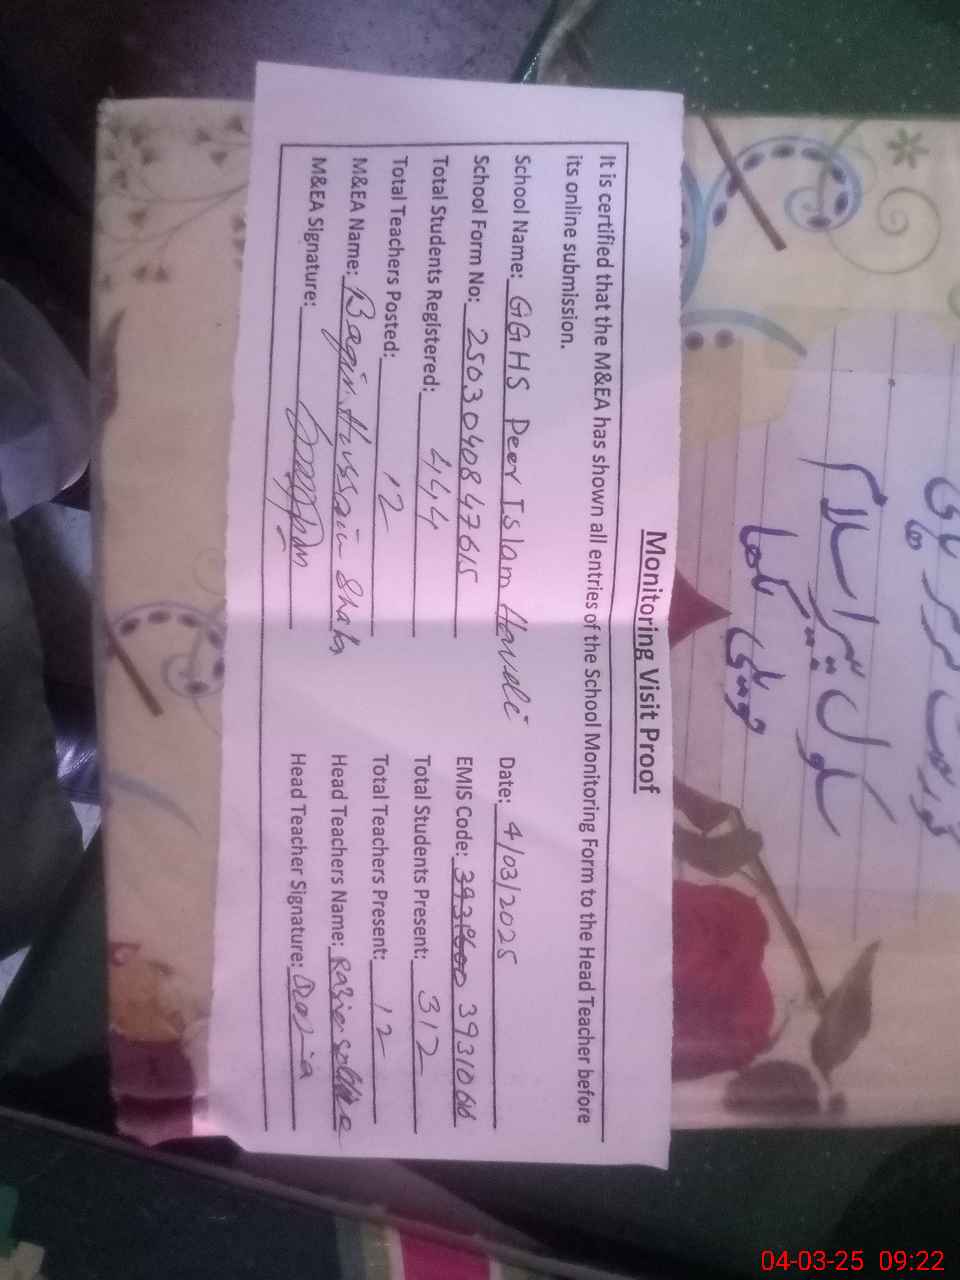 Monitoring Visit Proof
It is certified that the M&EA has shown all entries of the School Monitoring Form to the Head Teacher before
its online submission.
School Name: GGHS Peer Islam Haveli Date: 4/03/2025
School Form No: 2503040847615 EMIS Code: 3931066
Total Students Registered: 444 Total Students Present: 312
Total Teachers Posted: 12 Total Teachers Present: 12
M&EA Name: Baqir Hussain Shah Head Teachers Name: Razia
M&EA Signature: Head Teacher Signature: Razia
سکول پیر اسلام
حویلی
04-03-25 09:22